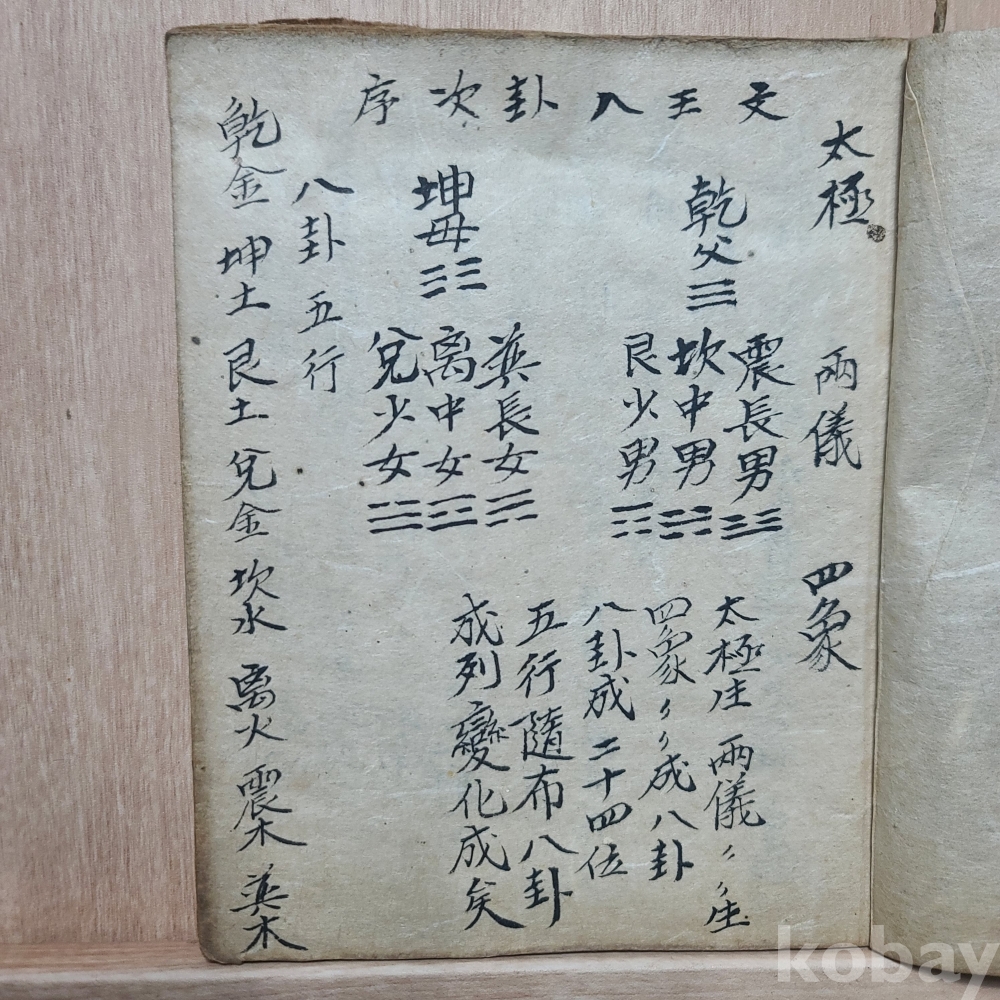 太極 兩儀 四象
文王八卦次序
乾父☰
震長男☳
坎中男☵
艮少男☶
坤母☷
巽長女☴
离中女☲
兌少女☱
太極生兩儀〻〻生
四象〻〻成八卦
八卦成二十四位
五行隨布八卦
成列變化成矣
八卦五行
乾金 坤土 艮土 兌金 坎水 离火 震木 巽木
kobay